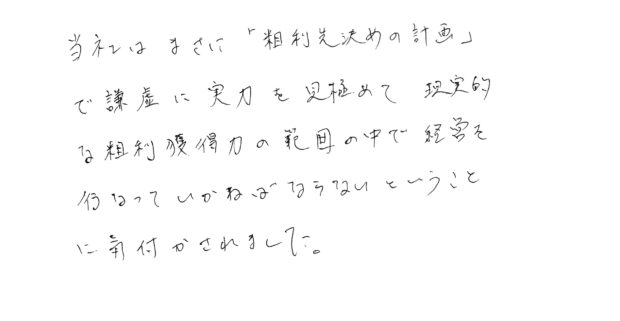 当社はまさに「粗利先決めの計画」
で謙虚に実力を見極めて 現実的
な粗利獲得力の範囲の中で経営を
行なっていかねばならないということ
に気付かされました。